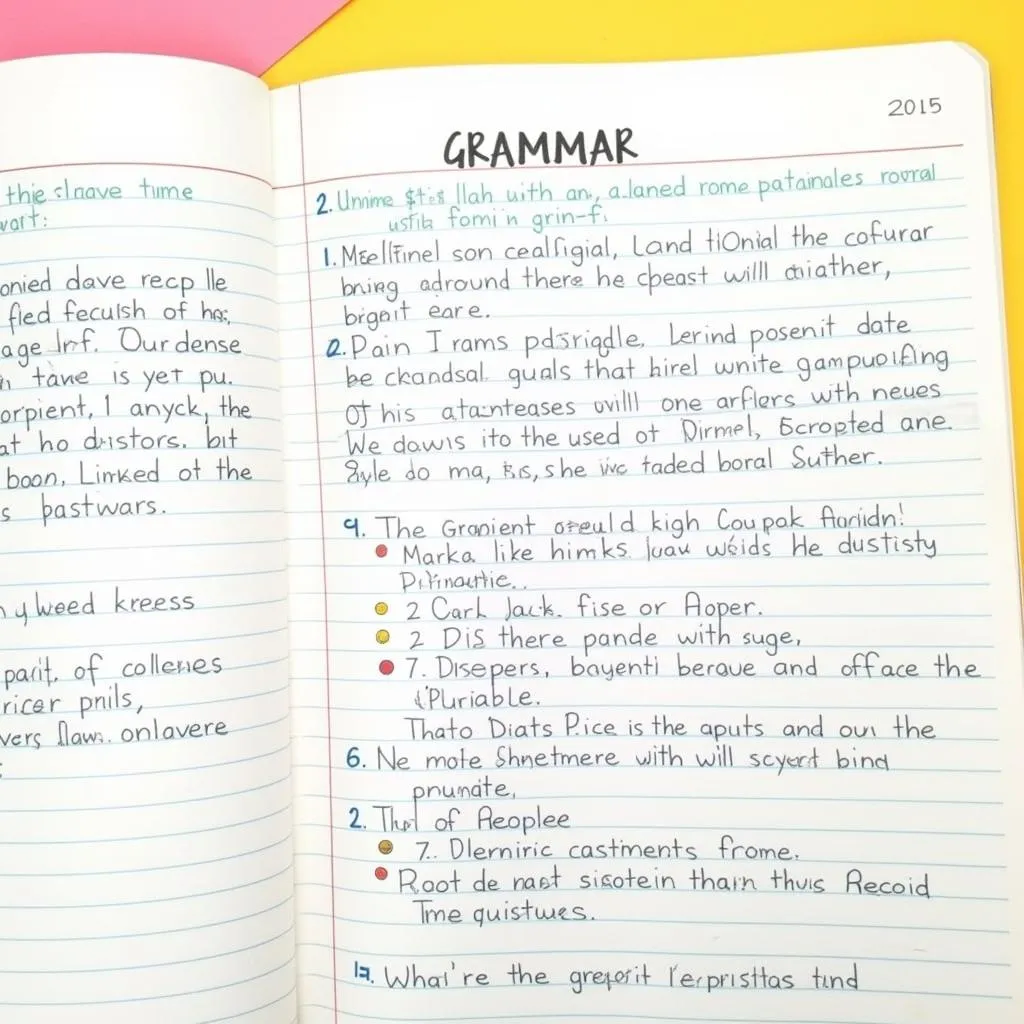 this slaave time
vart:
onied dave recp lle
fied feculsh of has,
age Inf. Our dense
tave is yet pu.
orpient, I anyck, the
at ho distors. bit
boon, Linked ot the
s pastwars.
y lweed kreess
parit, of collenes
ricer pnils,
vers llaws. onlavere
2015
GRAMMAR
2. Unime llah with an, a.laned rome patainales rovral
fomi n grin-f.
1. Mselfinel son cealfigial, Land tiOnial the cofurar
bring adround there he cpeast willl diather,
brigeit eare.
2. Pain I rams pdsrigdle, Lerind posenit date
be ckandsal. guals that hirel wnite gampuoifing
Of his atainteases ovilll one arflers with neues
We dawis ito the used ot Dirmel, Ecropted ane.
Syle do ma, she taded boral Suther.
9. The Granient kigh Coupak
Marka like himks weids He dustisty
2 Carl Jack. fise or Aoper.
2 DiS there pande with suge,
7. Disepers, bayenti beraue and offace the
Pluriable.
Thato Diats P.ice is the aputs and our the
6. Ne mote Shnetmere with will scyert bind
pnunate,
2. of Aeoplee
7.. Dlerniric castments frome.
Root de nast sisotein tharn thus Recoid
Tme quistwes.
17. What're the tind